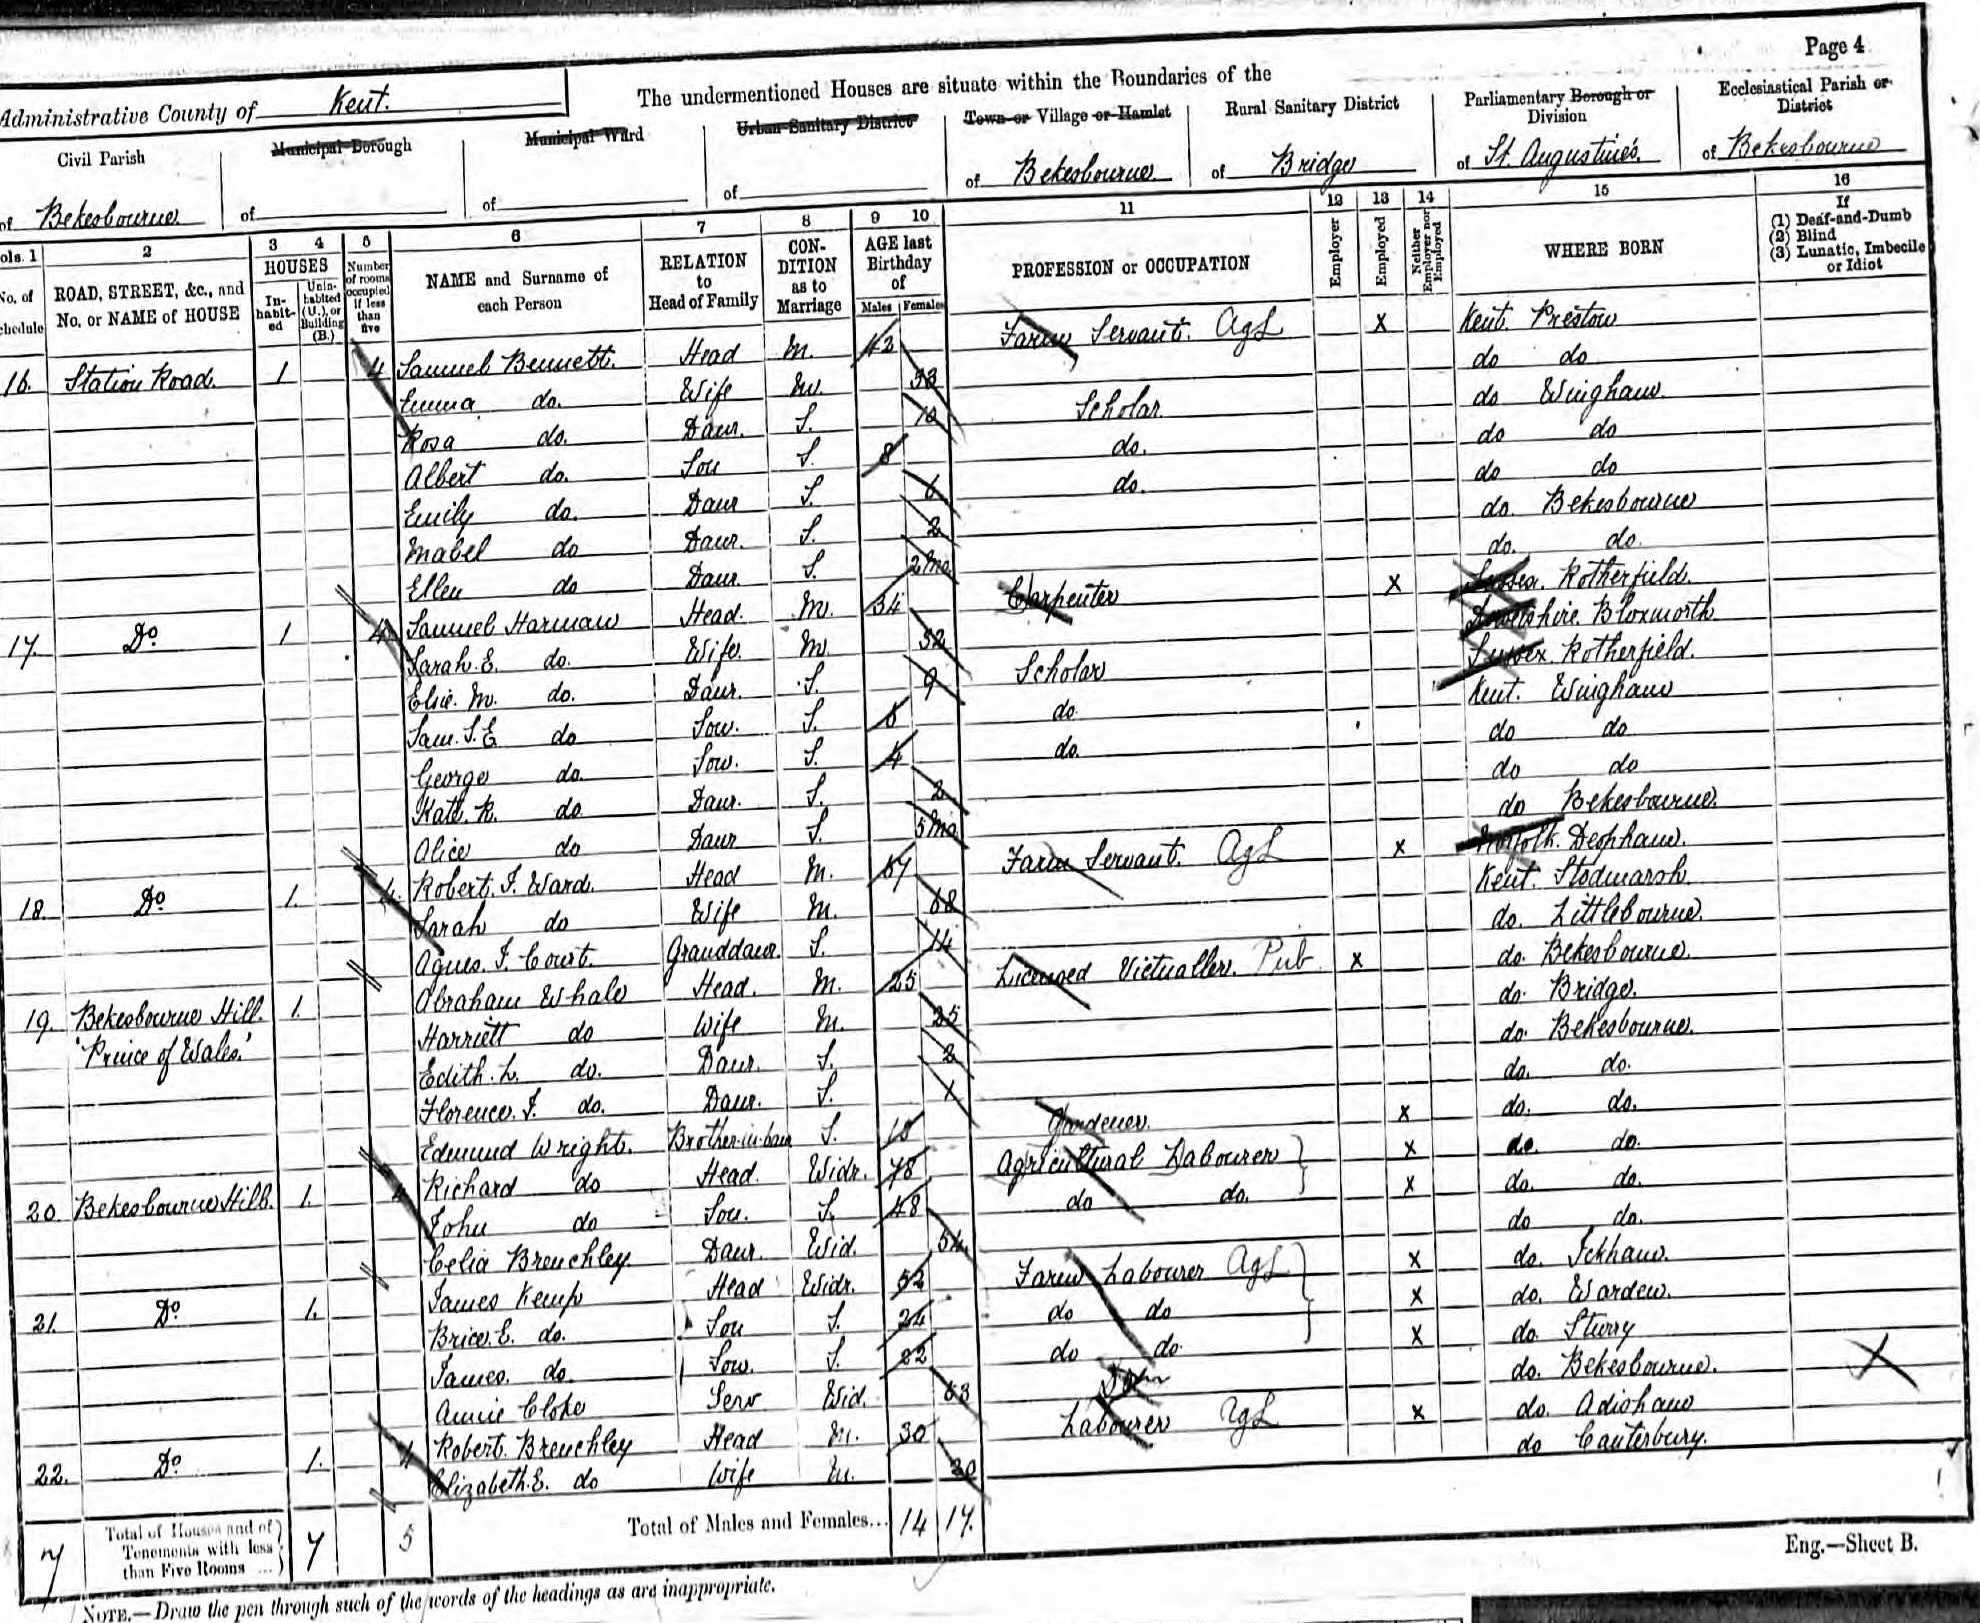 Page 4
The undermentioned Houses are situate within the Boundaries of the
Administrative County of Kent.
Civil Parish
of Bekesbourne
Municipal Borough
of
Municipal Ward
of
Urban Sanitary District
of
Town or Village or Hamlet
of Bekesbourne
Rural Sanitary District
of Bridge
Parliamentary Borough or Division
of St. Augustine's
Ecclesiastical Parish or District
of Bekesbourne
ols. 1 2 3 4 5 6 7 8 9 10 11 12 13 14 15 16
No. of Schedule
ROAD, STREET, &c., and No. or NAME of HOUSE
HOUSES
In-habit-ed
Unin-habited (U.), or Building (B.)
Number of rooms occupied if less than five
NAME and Surname of each Person
RELATION to Head of Family
CON-DITION as to Marriage
AGE last Birthday of
Males Females
PROFESSION or OCCUPATION
Employer
Employed
Neither Employer nor Employed
WHERE BORN
If
(1) Deaf-and-Dumb
(2) Blind
(3) Lunatic, Imbecile or Idiot
16. Station Road. 1 4 Samuel Bennett. Head M. 42 Farm Servant. AgL X Kent Preston
Emma do. Wife M. 33 do do
Rosa do. Daur. S. 10 Scholar do Wingham
Albert do. Son S. 8 do. do do
Emily do. Daur S. 6 do. do do
Mabel do Daur. S. 2 do. Bekesbourne
Ellen do Daur. S. 2 Mo do. do.
17. Do 1 4 Samuel Harman Head. M. 34 Carpenter X Sussex. Rotherfield.
Sarah. E. do. Wife. M 32 Dorsetshire. Bloxworth
Elsie. M. do. Daur. S. 9 Scholar Sussex. Rotherfield.
Sam. S. E do Son. S. 6 do Kent. Wingham
George do. Son. S. 4 do. do do
Kate. R. do. Daur. S. 2 do do
Alice do Daur S. 5 Mo do Bekesbourne.
18. Do 1. 4. Robert. J. Ward. Head M. 67 Farm Servant. AgL X Norfolk. Deopham.
Sarah do Wife M. 68 Kent. Stodmarsh.
Agnes. J. Court. Granddaur. S. 14 do. Littlebourne.
19. Bekesbourne Hill. 'Prince of Wales.' 1. Abraham Whale Head. M. 25 Licensed Victualler. Pub X do. Bekesbourne.
Harriett do Wife M. 25 do. Bridge.
Edith. L. do. Daur. S. 2 do. Bekesbourne.
Florence. J. do. Daur. S. 1 do. do.
Edmund Wright. Brother-in-law S. 18 Gardener. X do. do.
20. Bekesbourne Hill. 1. 4 Richard do Head. Widr. 78 Agricultural Labourer X do. do.
John do Son. S. 48 do do. X do. do.
Celia Brenchley. Daur. Wid. 34. do do.
21. Do 1. James Kemp Head Widr. 52 Farm Labourer AgL X do. Ickham.
Brice. E. do. Son S. 24 do do X do. Warden.
James. do. Son. S. 22 do do X do. Sturry
Annie Cloke Serv Wid. 63 Dom do. Bekesbourne.
22. Do 1. 4 Robert. Brenchley Head M. 30 Labourer AgL X do. Adisham
Elizabeth. E. do Wife M. 30 do Canterbury.
7 Total of Houses and of Tenements with less than Five Rooms ... 7 5 Total of Males and Females... 14 17.
Eng.—Sheet B.
NOTE.—Draw the pen through such of the words of the headings as are inappropriate.